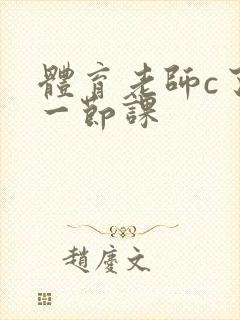 體育老師c了
一節課
趙慶文